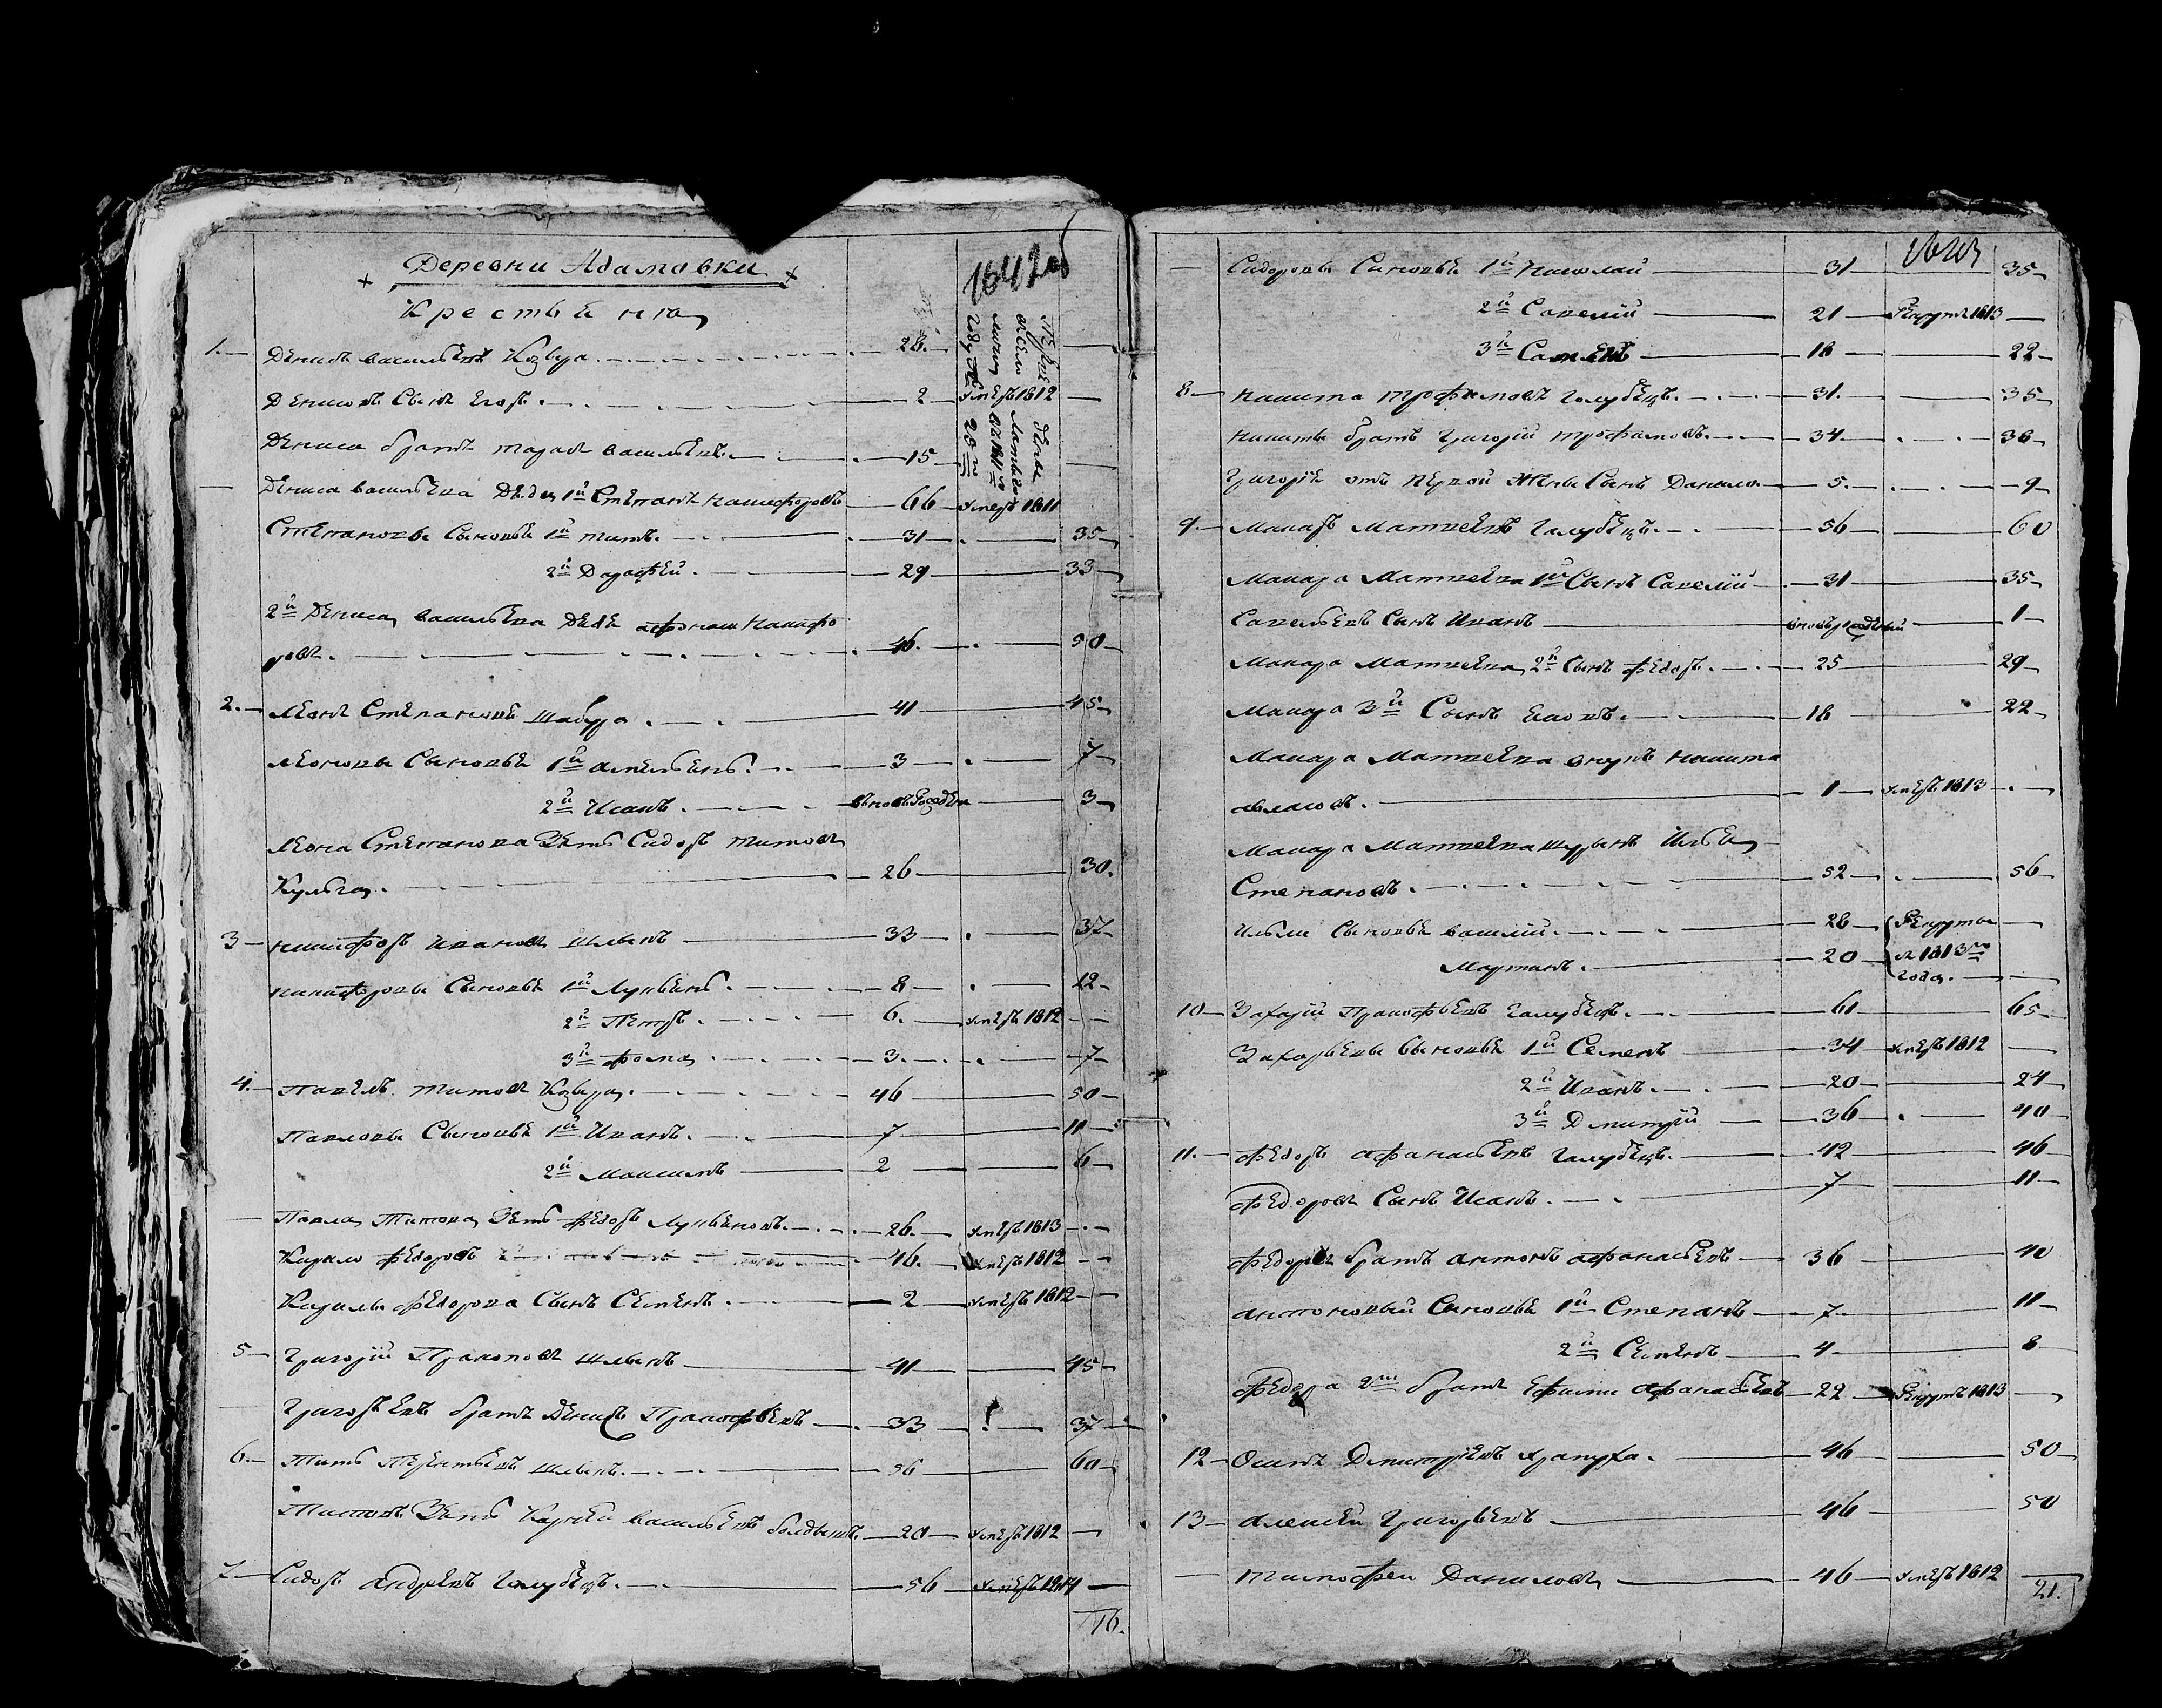 Деревни Адамовки
Крестьяня
1. Денисъ васильевъ Козыра 28
Денисовъ Сынъ Егоръ 2 умеръ 1812
Дениса братъ тарасъ васильевъ 15
Дениса васильева Деды 1й Степанъ никифоровъ 66 умеръ 1811
Степановы Сыновья 1й титъ 31 35
2й Дарофей 29 33
2й Дениса васильева Деде афонаси никифо
ровъ 46 50
2. Леонъ Степановъ шабура 41 45
Леоновы Сыновья 1й амельянъ 3 7
2й Исакъ вновьрожден 3
Леона Степанова Зять Сидоръ титовъ
Кульга 26 30
3 никифоръ ивановъ шлыкъ 33 37
никифоровы Сыновья 1й Лукьянъ 8 12
2й Петръ 6 умеръ 1812
3й фома 3 7
4 Павелъ титовъ Козыра 46 50
Павловы Сыновья 1й Иванъ 7 11
2й Максимъ 2 6
Павла Титова Зять федоръ Лукьяновъ 26 умеръ 1813
Кирило федоровъ 46 умеръ 1812
Кирилы федорова Сынъ Семенъ 2 умеръ 1812
5 Григорий Прокоповъ шлыкъ 41 45
Григорьевъ братъ Денисъ Прокофьевъ 33 37
6 Титъ Терентьевъ шлыкъ 56 60
Титовъ Зять Корней васильевъ болдыкъ 20 умеръ 1812
7 Сидоръ андреевъ Голубецъ 56 умеръ 1814
16.
Сидоровы Сыновья 1й Николай 31 35
2й Савелий 21 Рекрутъ 1813
3й 18 22
8 никита трофимовъ голубецъ 31 35
никиты братъ григорий трофимовъ 34 38
Григорiя отъ первой Жены Сынъ Данило 5 9
9 Макаръ Матвеевъ голубецъ 56 60
Макара Матвеева 1й Сынъ Савелий 31 35
Савельевъ Сынъ Иванъ вновьрожденый 1
Макара Матвеева 2й Сынъ федоръ 25 29
Макара 3й Сынъ 18 22
Макара Матвеева внукъ никита
1 умеръ 1813
Макара Матвеева шурынъ Илья
Степановъ 52 56
Ильи Сыновья василий 28 Рекруты
Мартинъ 20 в 1813мъ
года
10 Захарий Прокофьевъ голубецъ 61 65
Захарьевы Сыновья 1й Семенъ 34 умеръ 1812
2й Иванъ 20 24
3й Дмитрий 36 40
11. федоръ афанасьевъ голубецъ 42 46
федоровъ Сынъ Исакъ 7 11
федоровъ братъ антонъ афанасьевъ 36 40
антоновый Сыновья 1й Степанъ 7 11
2й Семенъ 4 8
федора 2й братъ Ефимъ афанасьевъ 22 Рекрутъ 1813
12 Осипъ Дмитриевъ храпуха 46 50
13 алексей григорьевъ 46 50
тимофеи Даниловъ 46 умеръ 1812
21.